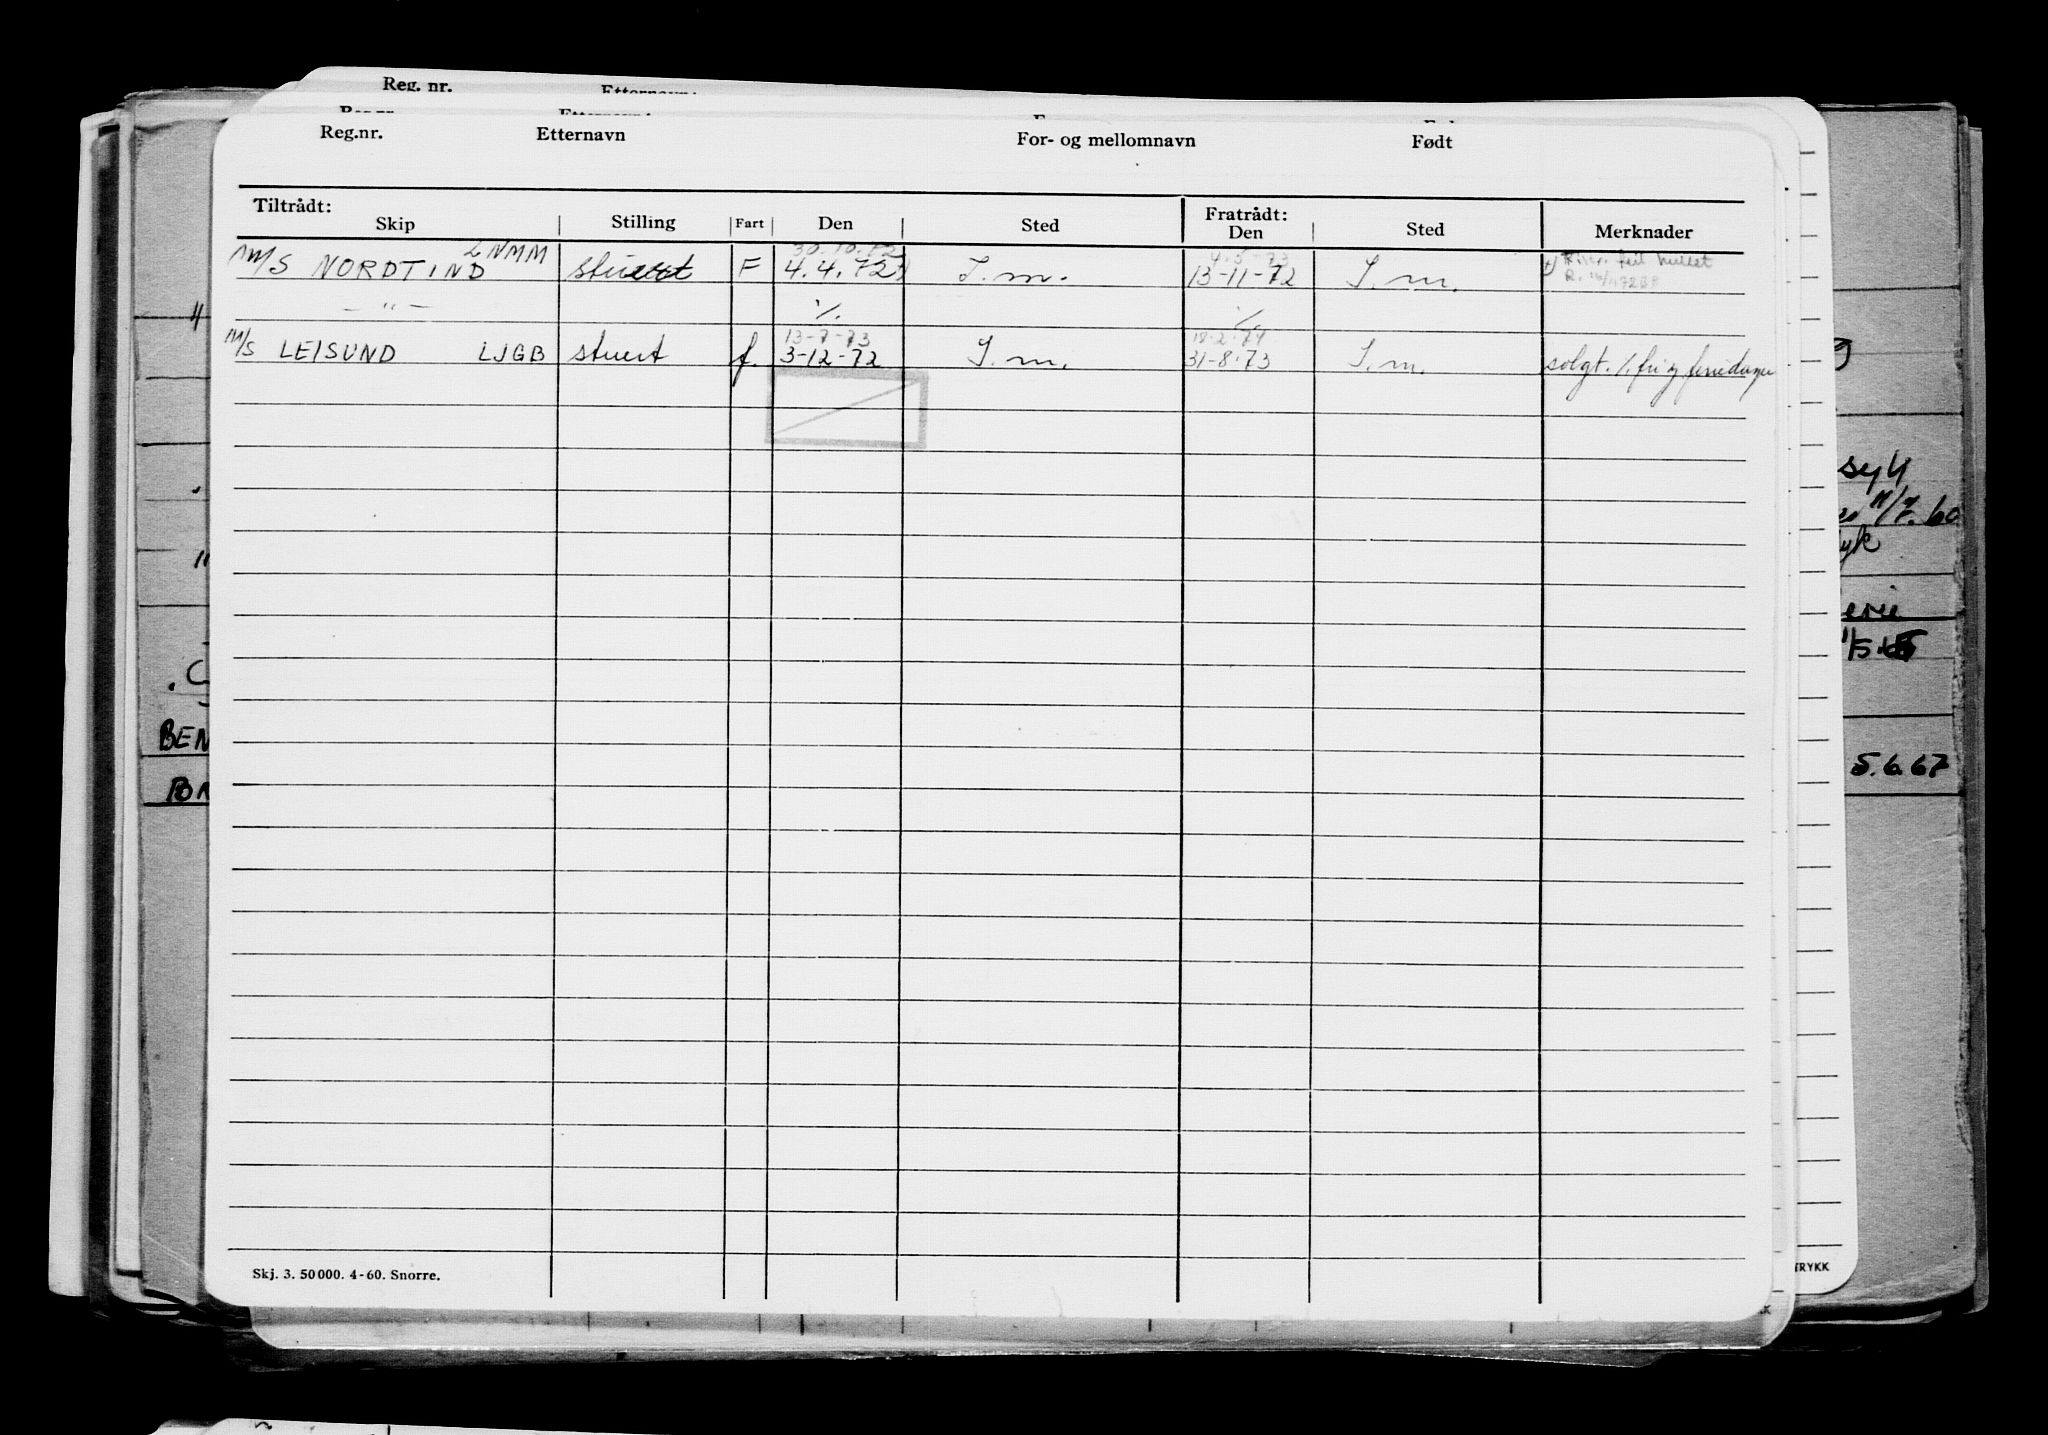 Reg. nr.
Reg.nr. Etternavn For- og mellomnavn Født
Tiltrådt: Fratrådt:
Skip Stilling Fart Den Sted Den Sted Merknader
LNMM 30.10.72 4.5-73
M/S NORDTIND stuert F 4.4.72 I.m. 13-11-72 I.m. feil hullet
— " — ·/. ·/.
13-7-73 18.2.74
M/S LEISUND LJGB stuert f. 3-12-72 I.m. 31-8-73 I.m. solgt. ·/. fri og feriedager
syk
11/7.60
5.65
BEN
5.6.67
Skj. 3. 50000. 4-60. Snorre.
TRYKK